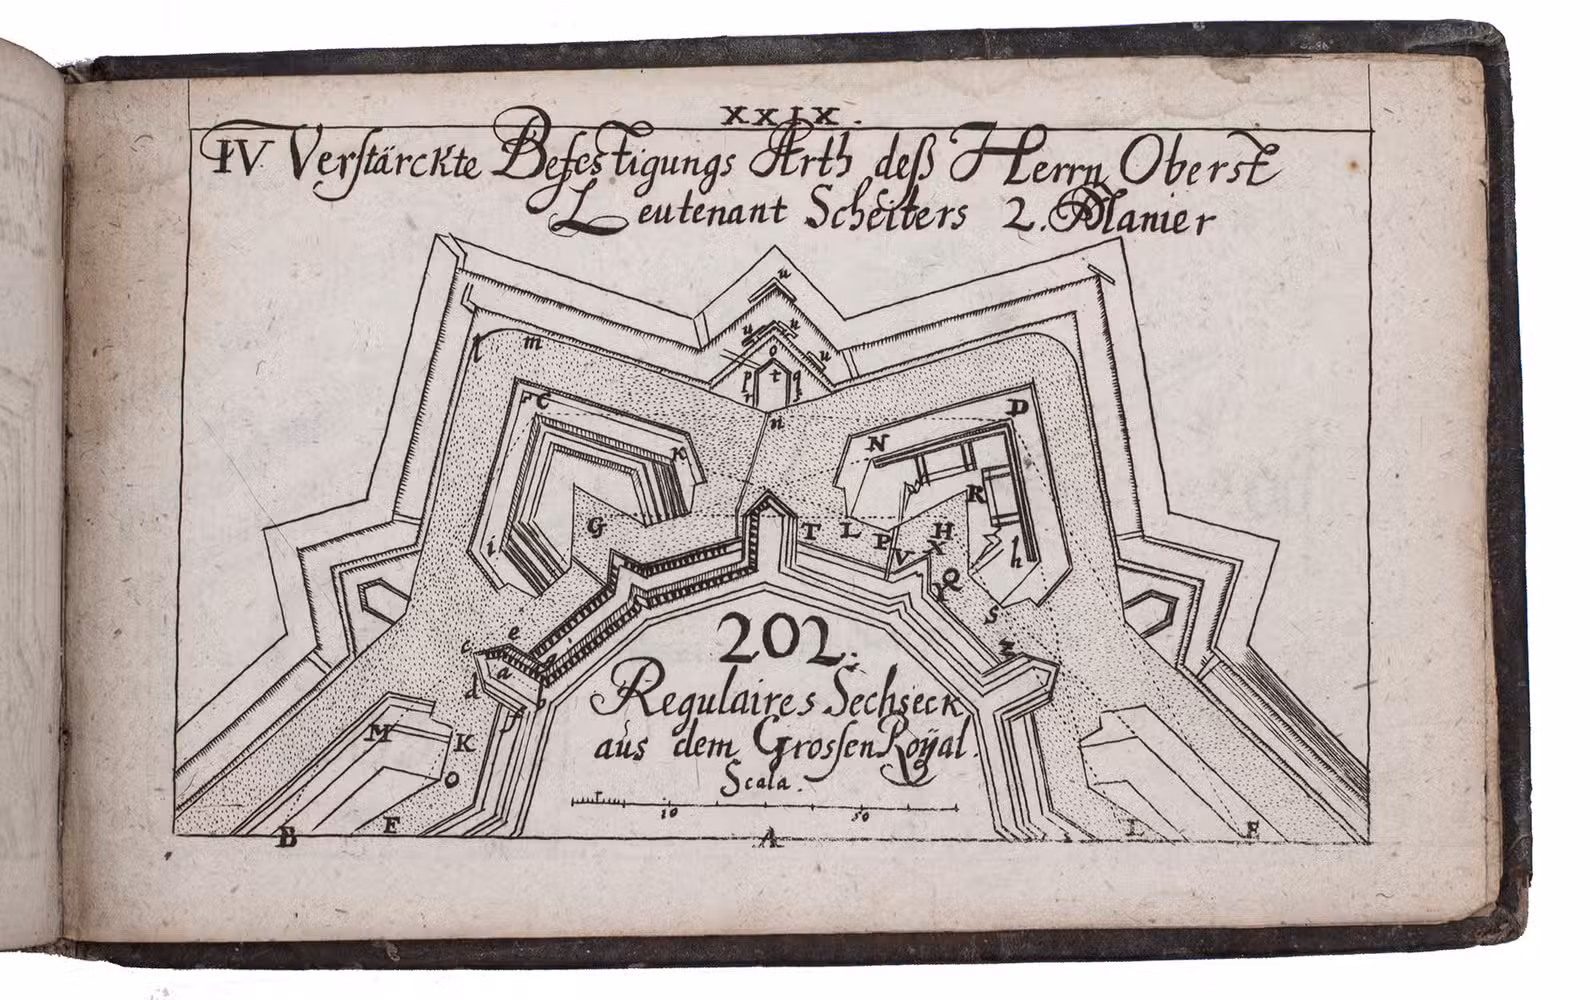 XXIX.
IV Verstärckte Befestigungs Arth deß Herrn Oberst
Leutenant Scheiters 2. Manier
u
u u
o u
l m p t q
r s
C n D
K N
R
G T L P H
i V X h
Q
Y
e S
c Z
a
d b
f
202.
Regulaires Sechseck
M aus dem Grossen Royal.
K
Scala.
O
10 50
B F A L E